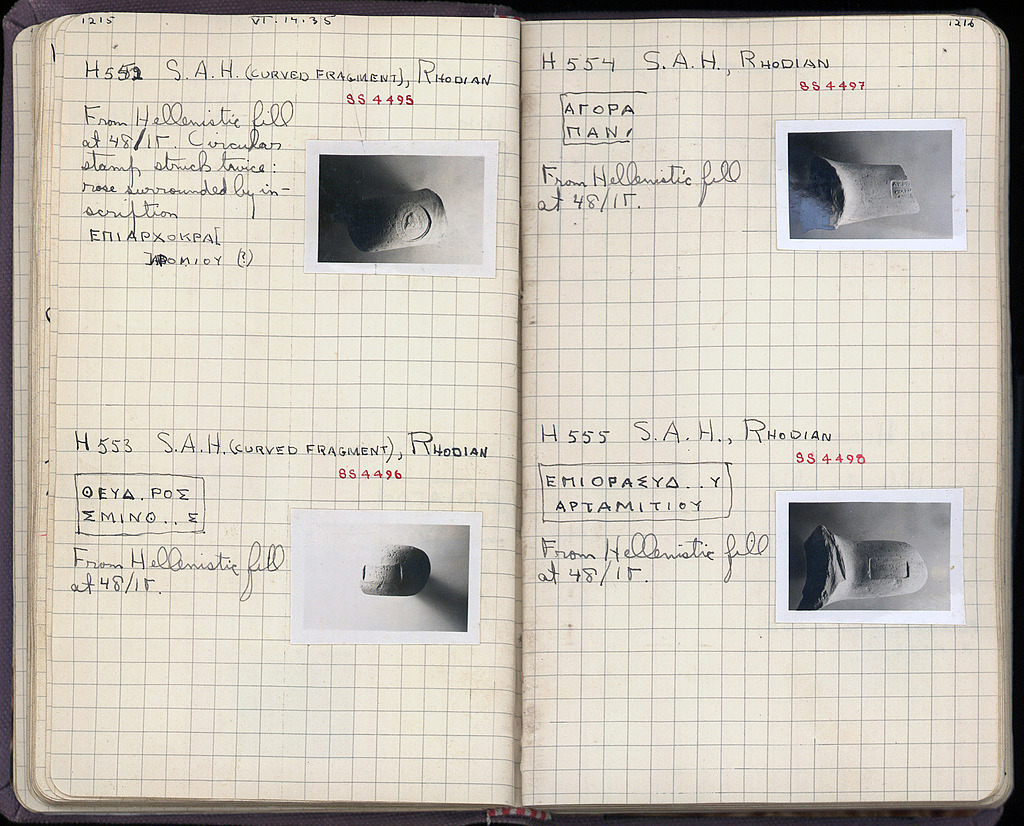 1215
VI.14.35
H 552 S.A.H. (CURVED FRAGMENT), RHODIAN
SS 4495
From Hellenistic fill
at 48/ΙΓ. Circular
stamp struck twice:
rose surrounded by in-
scription
ΕΠΙΑΡΧΟΚΡΑ[
ΟΜΙΟΥ (?)
H 553 S.A.H. (CURVED FRAGMENT), RHODIAN
SS 4496
ΘΕΥΔ.ΡΟΣ
ΣΜΙΝΘ..Σ
From Hellenistic fill
at 48/ΙΓ.
1216
H 554 S.A.H., RHODIAN
SS 4497
ΑΓΟΡΑ
ΠΑΝ
From Hellenistic fill
at 48/ΙΓ.
H 555 S.A.H., RHODIAN
SS 4498
ΕΜΙΟΡΑΣΥΔ..Υ
ΑΡΤΑΜΙΤΙΟΥ
From Hellenistic fill
at 48/ΙΓ.